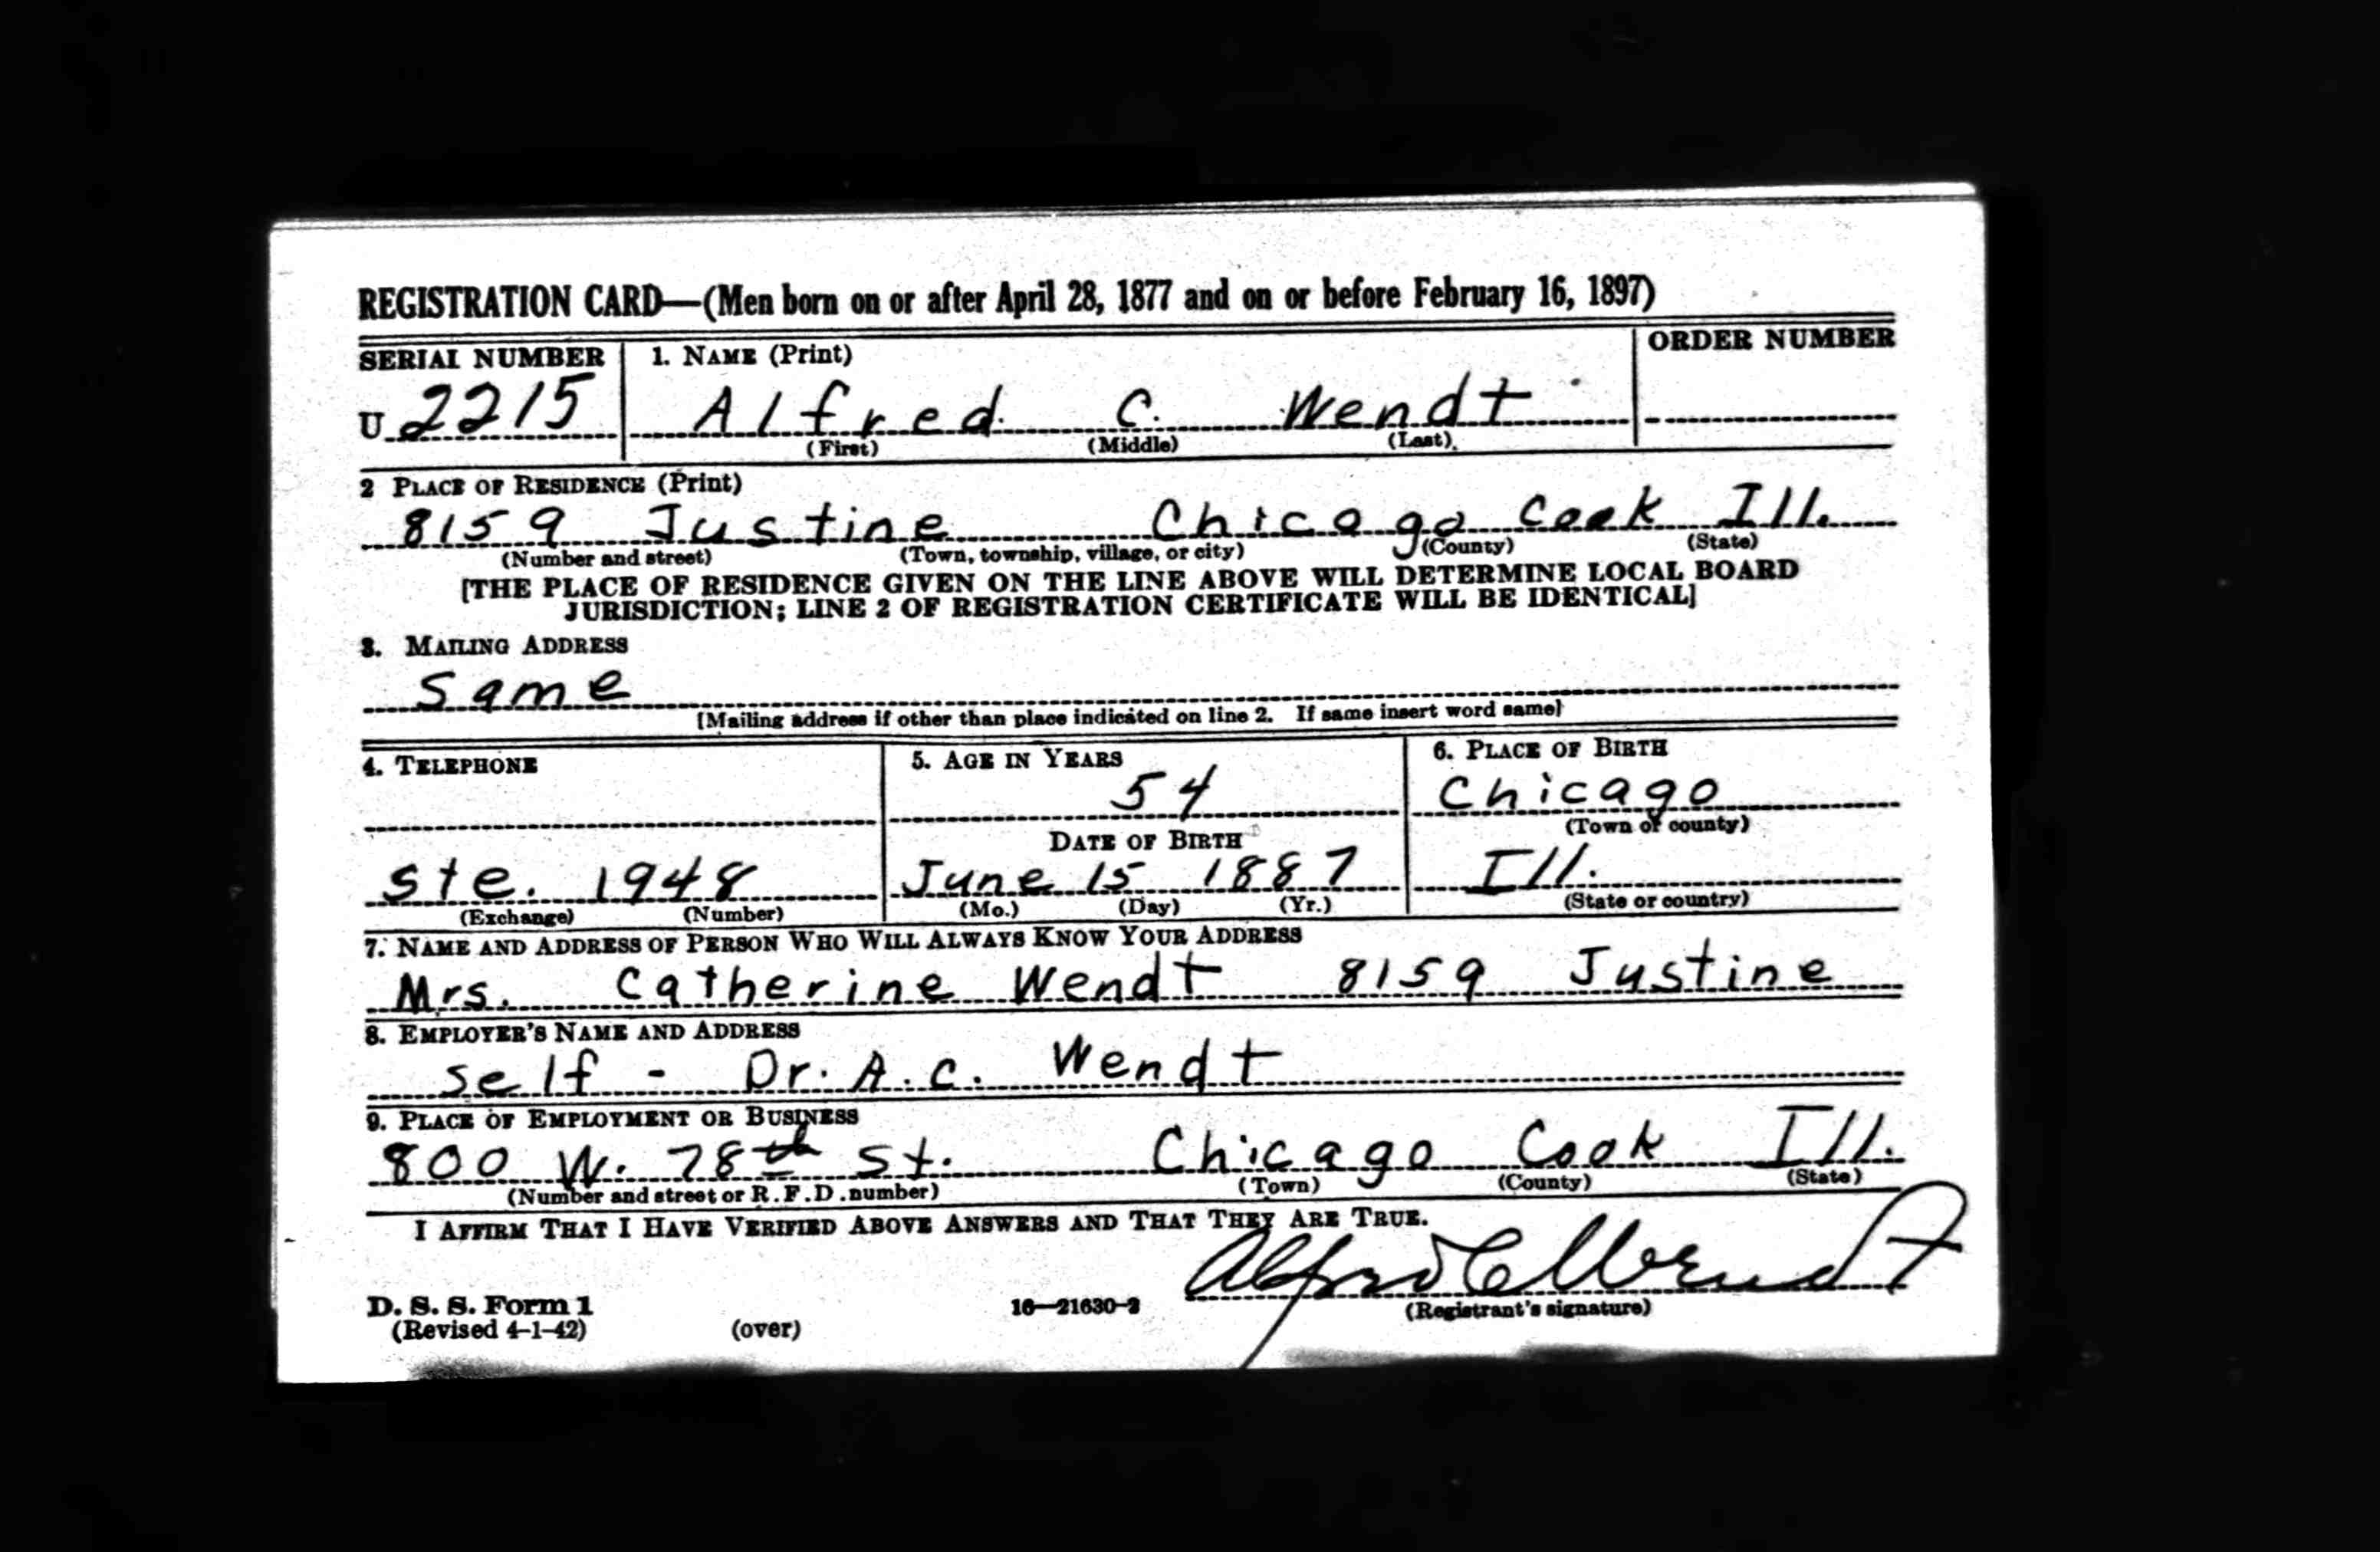 REGISTRATION CARD—(Men born on or after April 28, 1877 and on or before February 16, 1897)
SERIAL NUMBER 1. NAME (Print) ORDER NUMBER
U 2215 Alfred C. Wendt
(First) (Middle) (Last)
2 PLACE OF RESIDENCE (Print)
8159 Justine Chicago Cook Ill.
(Number and street) (Town, township, village, or city) (County) (State)
[THE PLACE OF RESIDENCE GIVEN ON THE LINE ABOVE WILL DETERMINE LOCAL BOARD
JURISDICTION; LINE 2 OF REGISTRATION CERTIFICATE WILL BE IDENTICAL]
3. MAILING ADDRESS
Same
[Mailing address if other than place indicated on line 2. If same insert word same]
4. TELEPHONE 5. AGE IN YEARS 6. PLACE OF BIRTH
54 Chicago
DATE OF BIRTH (Town or county)
Ste. 1948 June 15 1887 Ill.
(Exchange) (Number) (Mo.) (Day) (Yr.) (State or country)
7. NAME AND ADDRESS OF PERSON WHO WILL ALWAYS KNOW YOUR ADDRESS
Mrs. Catherine Wendt 8159 Justine
8. EMPLOYER'S NAME AND ADDRESS
Self - Dr. A. C. Wendt
9. PLACE OF EMPLOYMENT OR BUSINESS
800 W. 78th St. Chicago Cook Ill.
(Number and street or R.F.D. number) (Town) (County) (State)
I AFFIRM THAT I HAVE VERIFIED ABOVE ANSWERS AND THAT THEY ARE TRUE.
Alfred C Wendt
D. S. S. Form 1 16—21630-2 (Registrant's signature)
(Revised 4-1-42) (over)